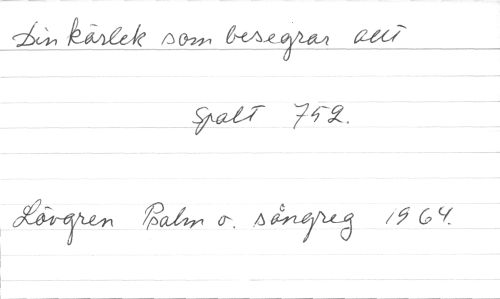 Din kärlek som besegrar allt
Spalt 752.
Lövgren Psalm o. sångreg 1964.